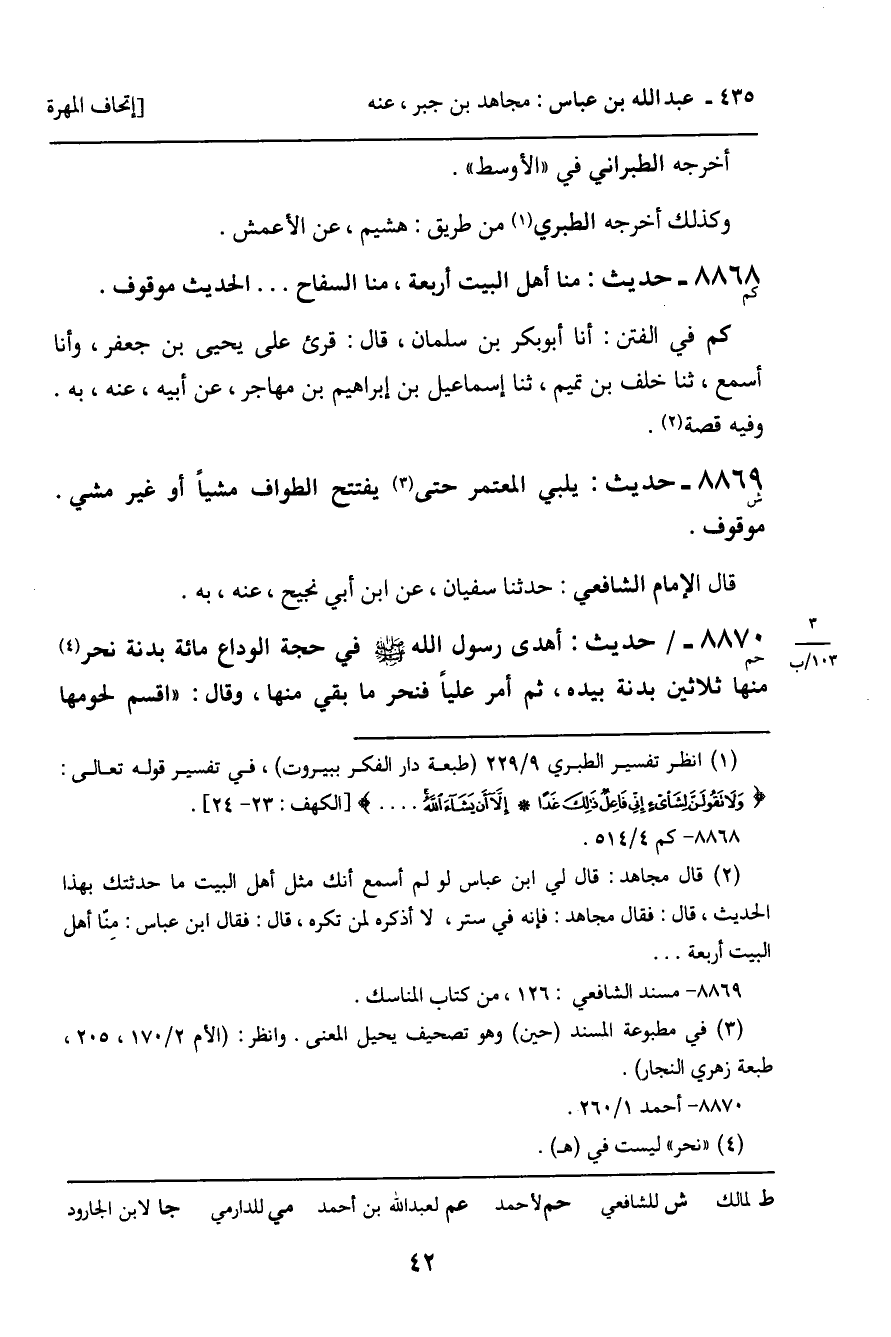 ٤٣٥ ـ عبد الله بن عباس : مجاهد بن جبر ، عنه [إتحاف المهرة
أخرجه الطبراني في «الأوسط» .
وكذلك أخرجه الطبري(١) من طريق : هشيم ، عن الأعمش .
٨٨٦٨ ـ حديث : منا أهل البيت أربعة ، منا السفاح ... الحديث موقوف .
كم
كم في الفتن : أنا أبوبكر بن سلمان ، قال : قرئ على يحيى بن جعفر ، وأنا
أسمع ، ثنا خلف بن تميم ، ثنا إسماعيل بن إبراهيم بن مهاجر ، عن أبيه ، عنه ، به .
وفيه قصة(٢) .
٨٨٦٩ ـ حديث : يلبي المعتمر حتى(٣) يفتتح الطواف مشياً أو غير مشي .
ش
موقوف .
قال الإمام الشافعي : حدثنا سفيان ، عن ابن أبي نجيح ، عنه ، به .
٨٨٧٠ ـ / حديث : أهدى رسول الله ﷺ في حجة الوداع مائة بدنة نحر(٤)
حم
٣
١٠٣/ب
منها ثلاثين بدنة بيده ، ثم أمر علياً فنحر ما بقي منها ، وقال : «اقسم لحومها
(١) انظر تفسير الطبري ٢٢٩/٩ (طبعة دار الفكر ببيروت) ، في تفسير قوله تعالى :
﴿ وَلَا تَقُولَنَّ لِشَاْىْءٍ إِنِّي فَاعِلٌ ذَٰلِكَ غَدًا * إِلَّا أَن يَشَاءَ اللَّهُ .... ﴾ [الكهف : ٢٣- ٢٤] .
٨٨٦٨- كم ٥١٤/٤ .
(٢) قال مجاهد : قال لي ابن عباس لو لم أسمع أنك مثل أهل البيت ما حدثتك بهذا
الحديث ، قال : فقال مجاهد : فإنه في ستر ، لا أذكره لمن تكره ، قال : فقال ابن عباس : مِنّا أهل
البيت أربعة ...
٨٨٦٩- مسند الشافعي : ١٢٦ ، من كتاب المناسك .
(٣) في مطبوعة المسند (حين) وهو تصحيف يحيل المعنى . وانظر : (الأم ١٧٠/٢ ، ٢٠٥ ،
طبعة زهري النجار) .
٨٨٧٠- أحمد ٢٦٠/١ .
(٤) «نحر» ليست في (هـ) .
ط لمالك ش للشافعي حم لأحمد عم لعبدالله بن أحمد مي للدارمي جا لابن الجارود
٤٢